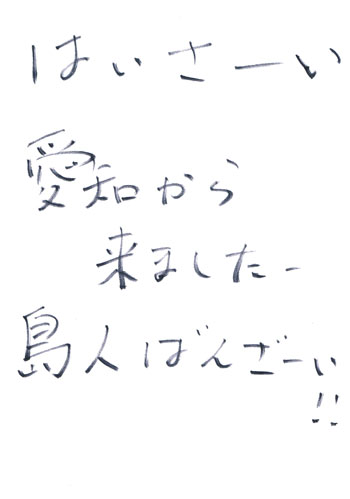 はぃさーい
愛知から
来ましたー
島人ばんざーぃ
!!